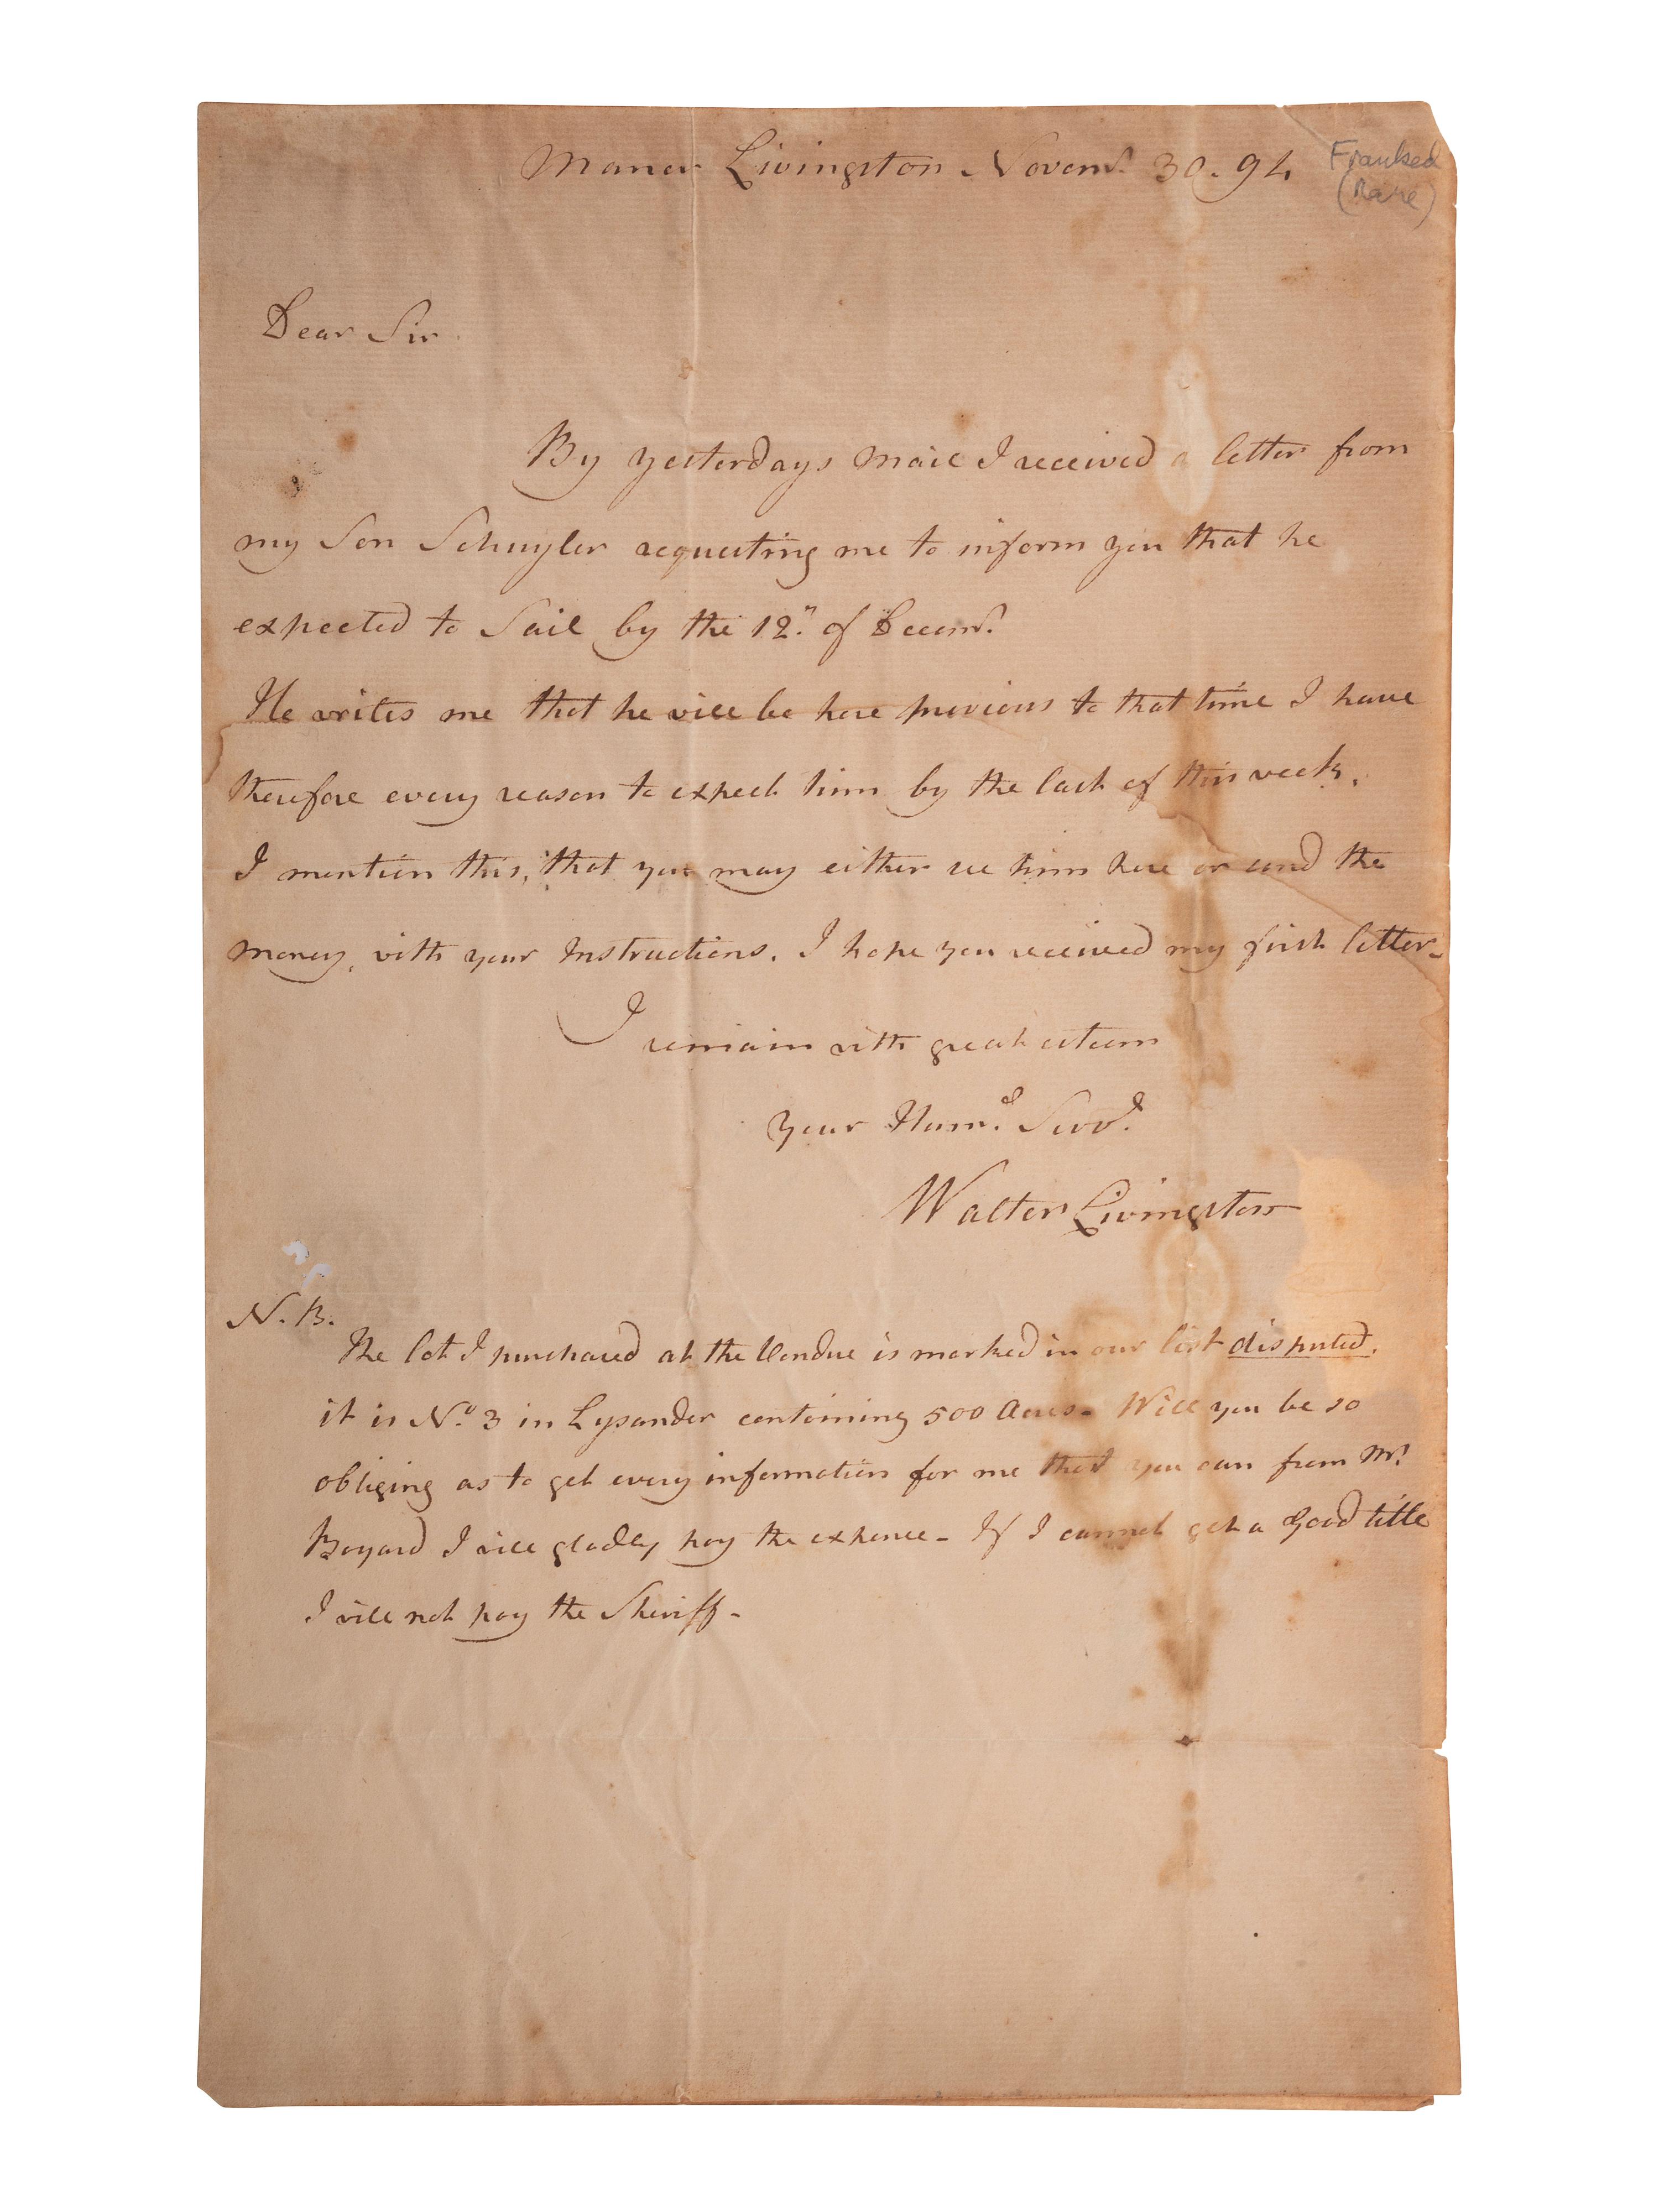 Manor Livingston Novemr. 30. 94
Franked
(Rare)
Dear Sir
By yesterdays Mail I received a letter from
my Son Schuyler requesting me to inform you that he
expected to Sail by the 12th. of Decemr.
He writes me that he will be here previous to that time I have
therefore every reason to expect him by the last of this week.
I mention this, that you may either see him here or send the
money, with your Instructions. I hope you received my first letter-
I
remain with great esteem
your Humle. Servt.
Walter Livingston
N. B.
The lot I purchased at the Vendue is marked in our list disputed.
it is No. 3 in Lysander containing 500 Acres- Will you be so
obliging as to get every information for me that you can from Mr.
Bayard I will gladly pay the expence- If I cannot get a Good title
I will not pay the Sheriff-